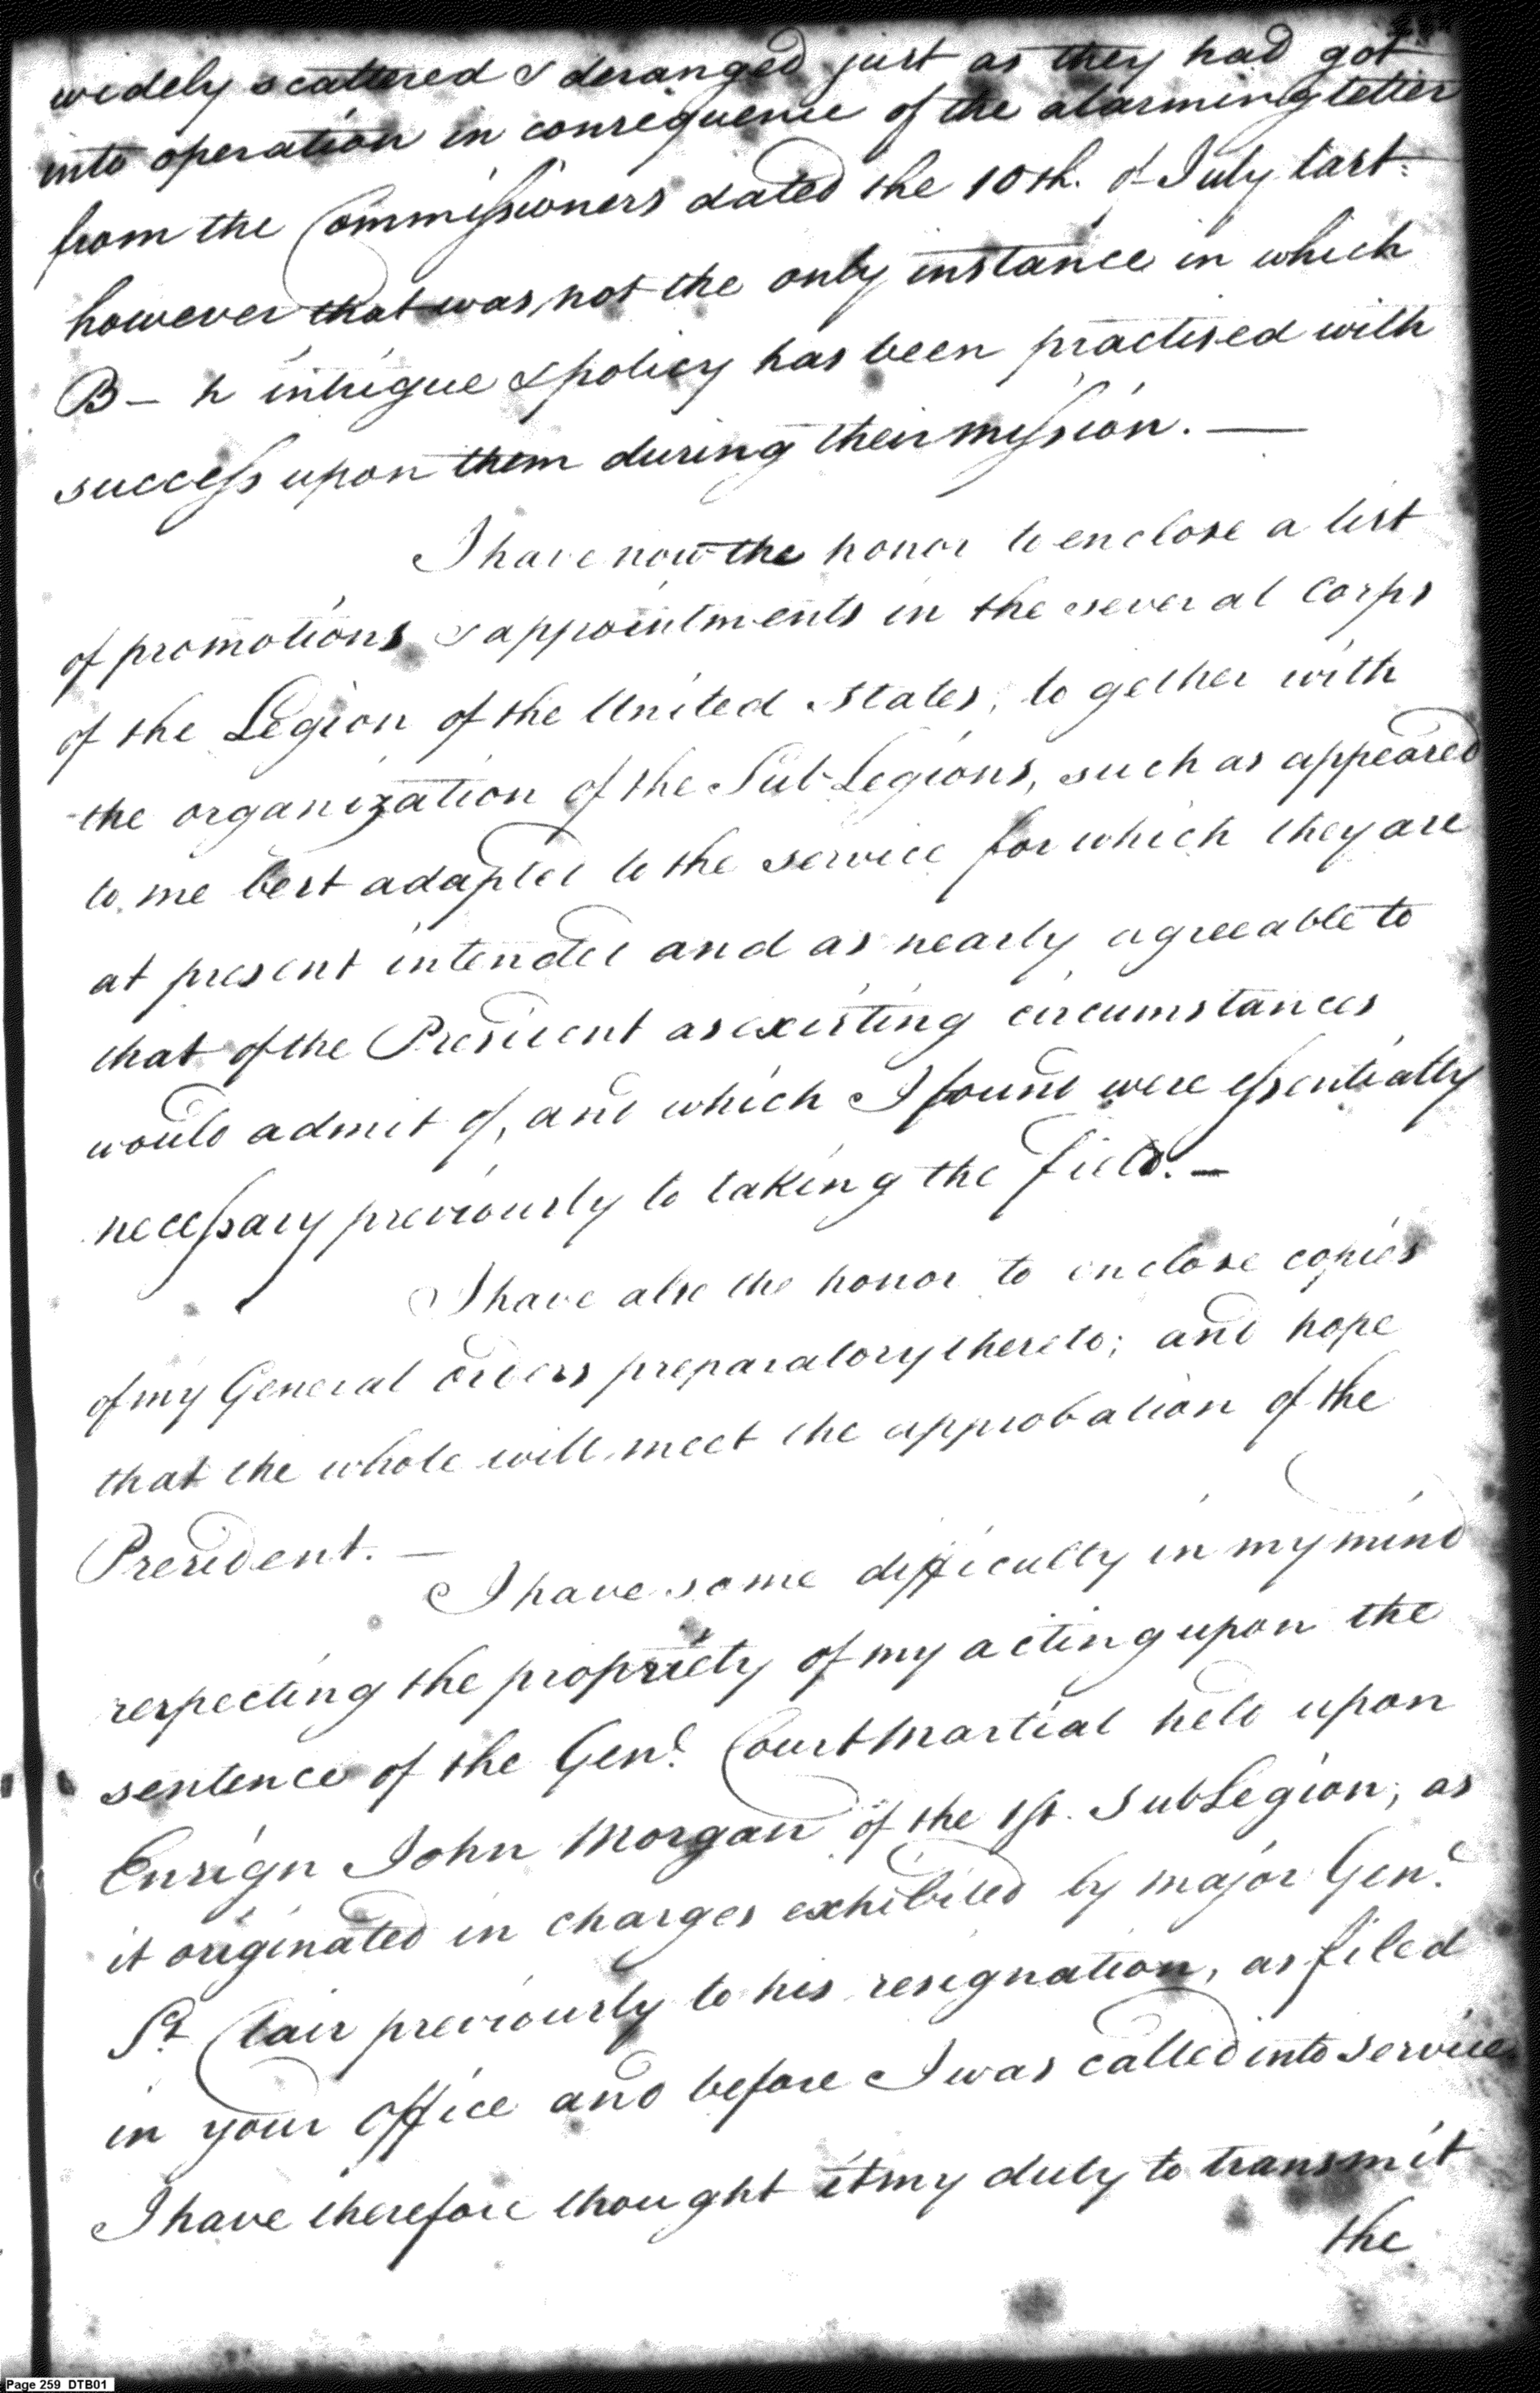 widely scattered & deranged just as they had got
into operation in consequence of the alarming letter
from the Commissioners dated the 10th. of July last:
however that was not the only instance in which
B— h intrigue & policy has been practised with
success upon them during their mission. —
I have now the honor to enclose a list
of promotions & appointments in the several Corps
of the Legion of the United States, to gether with
the organization of the Sub Legions, such as appeared
to me best adapted to the service for which they are
at present intended and as nearly agreeable to
that of the President as existing circumstances
would admit of, and which I found were essentially
necessary previously to taking the field. —
I have also the honor to enclose copies
of my General orders preparatory thereto; and hope
that the whole will meet the approbation of the
President. —
I have some difficulty in my mind
respecting the propriety of my acting upon the
sentence of the Genl. Court Martial held upon
Ensign John Morgan of the 1st. Sub Legion, as
it originated in charges exhibited by major Genl.
St. Clair previously to his resignation, as filed
in your Office and before I was called into service.
I have therefore thought it my duty to transmit
the
Page 259 DTB01